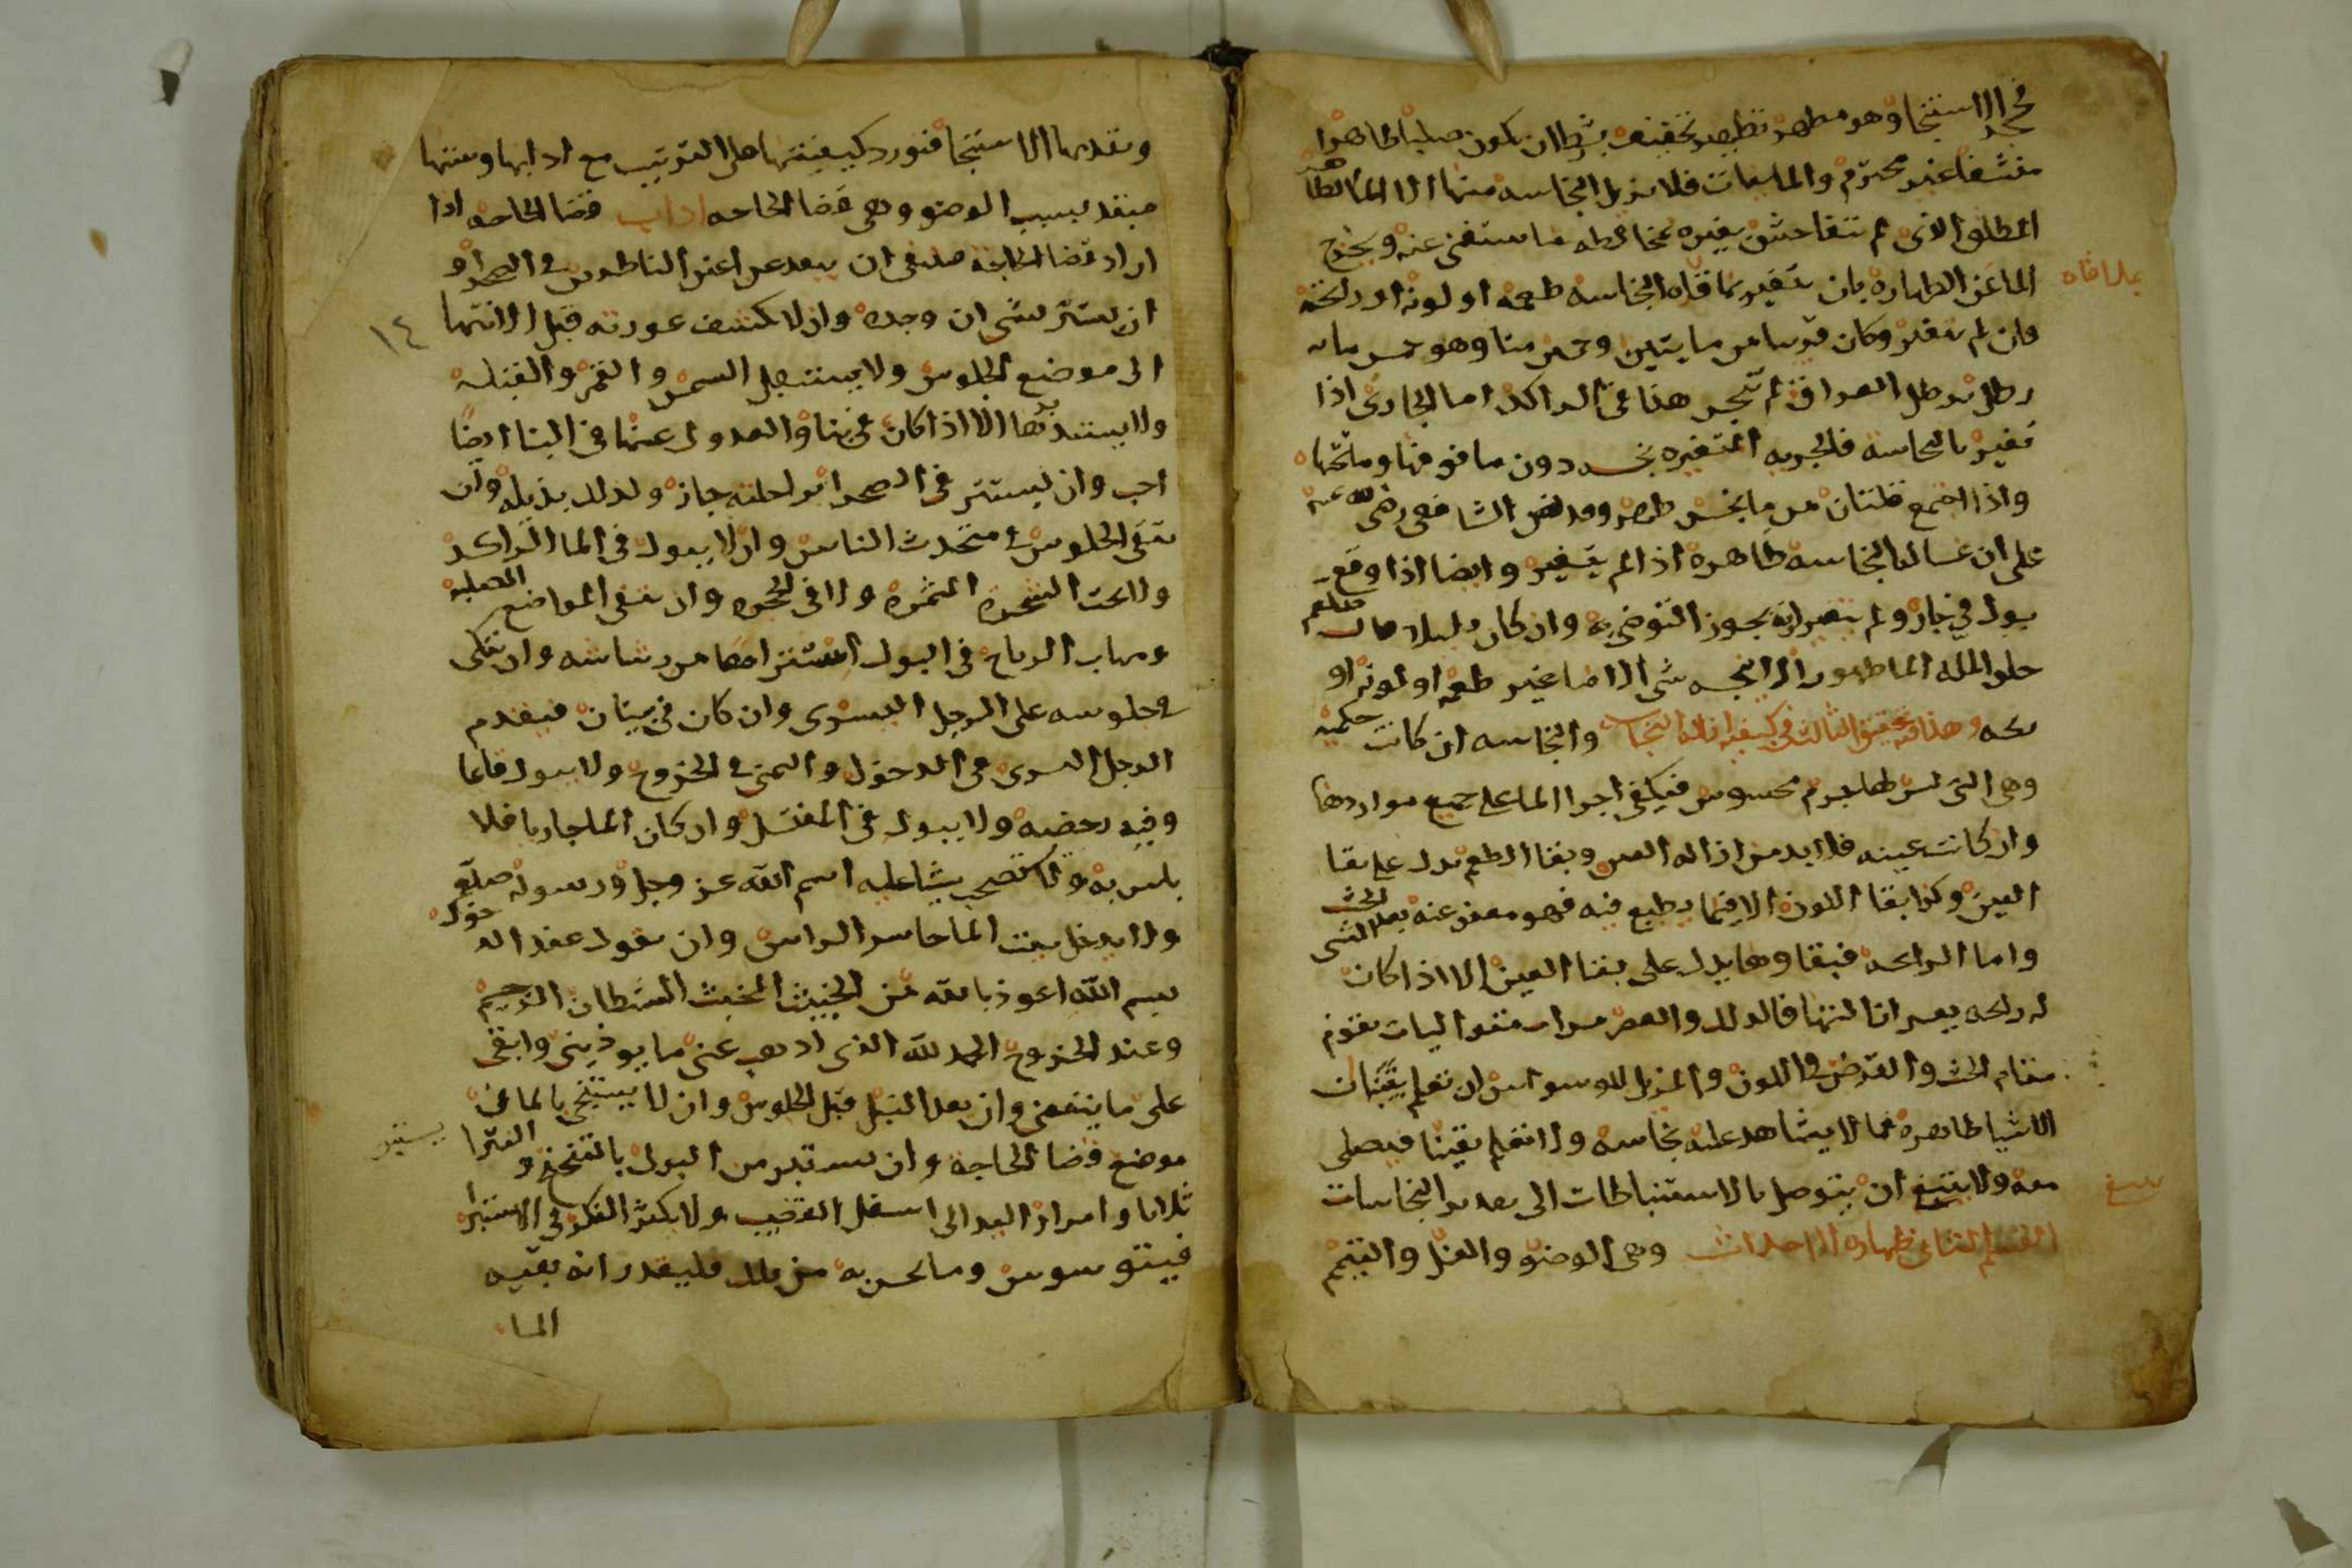 فحجر الاستنجا وهو مطهر تطهير تخفيف بشرط ان يكون صلبا طاهرا
منشفا غير محترم والمايعات فلا يزيل النجاسه منها الا الما الطاهر
المطلق الذى لم يتفاحش تغيره بمخالطه ما يستغنى عنه ويخرج
الما عن الطهارة بان يتغير بملاقاه النجاسه طعمه او لونه او رايحته
بملاقاه
وان لم يتغير وكان قريبا من مايتين وخمسين منا وهو خمس مايه
رطل برطل العراق لم ينجس هذا فى الراكد اما الجارى اذا
تغير بالنجاسه فالجريه المتغيره نجسه دون ما فوقها وما تحتها
واذا اجتمع قلتان من ما نجس طهر وقد نص الشافعى رضى الله عنه
على ان غسالة النجاسه طاهره اذا لم يتغير وايضا اذا وقع
بول فى جار ولم يتغير انه يجوز التوضى به وان كان قليلا قال صلعم
خلق الله الما طهورا لا ينجسه شى الا ما غير طعمه او لونه او
ريحه وهذا فيه تحقيق الثالث فى كيفيه ازاله النجاسه والنجاسه ان كانت حكميه
وهى التى ليس لها جرم محسوس فيكفى اجرا الما على جميع مواردها
وان كانت عينيه فلا بد من ازاله العين وبقا الطعم يدل على بقا
العين وكذا بقا اللون الا فيما يلتصق فيه فهو معفو عنه بعد الحث
واما الرايحه فبقاوها يدل على بقا العين الا اذا كان الشى
له رايحه يعسر ازالتها فالدلك والعصر مرات متواليات يقوم
مقام الحث والقرص فى اللون والمزيل للوسواس ان تعلم يقينا ان
الاشيا طاهره فما لا يشاهد عليه نجاسه ولا نعلم يقينا فيصلى
معه ولا ينبغى ان يتوصل بالاستنباطات الى تقدير النجاسات
القسم الثانى طهاره الاحداث وهى الوضو والغسل والتيمم
وتقدمها الاستنجا فنورد كيفيتها على الترتيب مع ادابها وسننها
مبتدا بسبب الوضو وهى قضا الحاجه اداب قضا الحاجه اذا
اراد قضا الحاجه فينبغى ان يبعد عن اعين الناظرين فى الصحرا و
ان يستتر بشى ان وجده وان لا يكشف عورته قبل الانتها
١٤
الى موضع الجلوس ولا يستقبل الشمس والقمر والقبله
ولا يستدبرها الا اذا كان فى بنا والعدول عنها فى البنا ايضا
احب وان يستتر فى الصحرا براحلته جاز وكذلك بذيله وان
يتقى الجلوس فى متحدث الناس وان لا يبول فى الما الراكد
ولا تحت الشجره المثمره ولا فى الجحر وان يتقى المواضع الصلبه
ومهاب الرياح فى البول استنزاها من رشاشه وان يتكى
فى جلوسه على الرجل اليسرى وان كان فى بنيان فيقدم
الرجل اليسرى فى الدخول واليمنى فى الخروج ولا يبول قايما
وفيه رخصه ولا يبول فى المغتسل وان كان الما جاريا فلا
باس به ولا يستصحب شيا عليه اسم الله عز وجل ورسوله صلعم
ولا يدخل بيت الما حاسر الراس وان يقول عند الدخول
بسم الله اعوذ بالله من الخبيث المخبث الشيطان الرجيم
وعند الخروج الحمد لله الذى اذهب عنى ما يوذينى وابقى
على ما ينفعنى وان يعد النبل قبل الجلوس وان لا يستنجى بالما فى
موضع قضا الحاجه وان يستبر من البول بالتنحنح والنتر
يستبر
ثلاثا وامرار اليد الى اسفل القضيب ولا يكثر الفكر فى الاستبرا
فيتوسوس وما يحس به من بلل فليقدر انه بقيه
الما